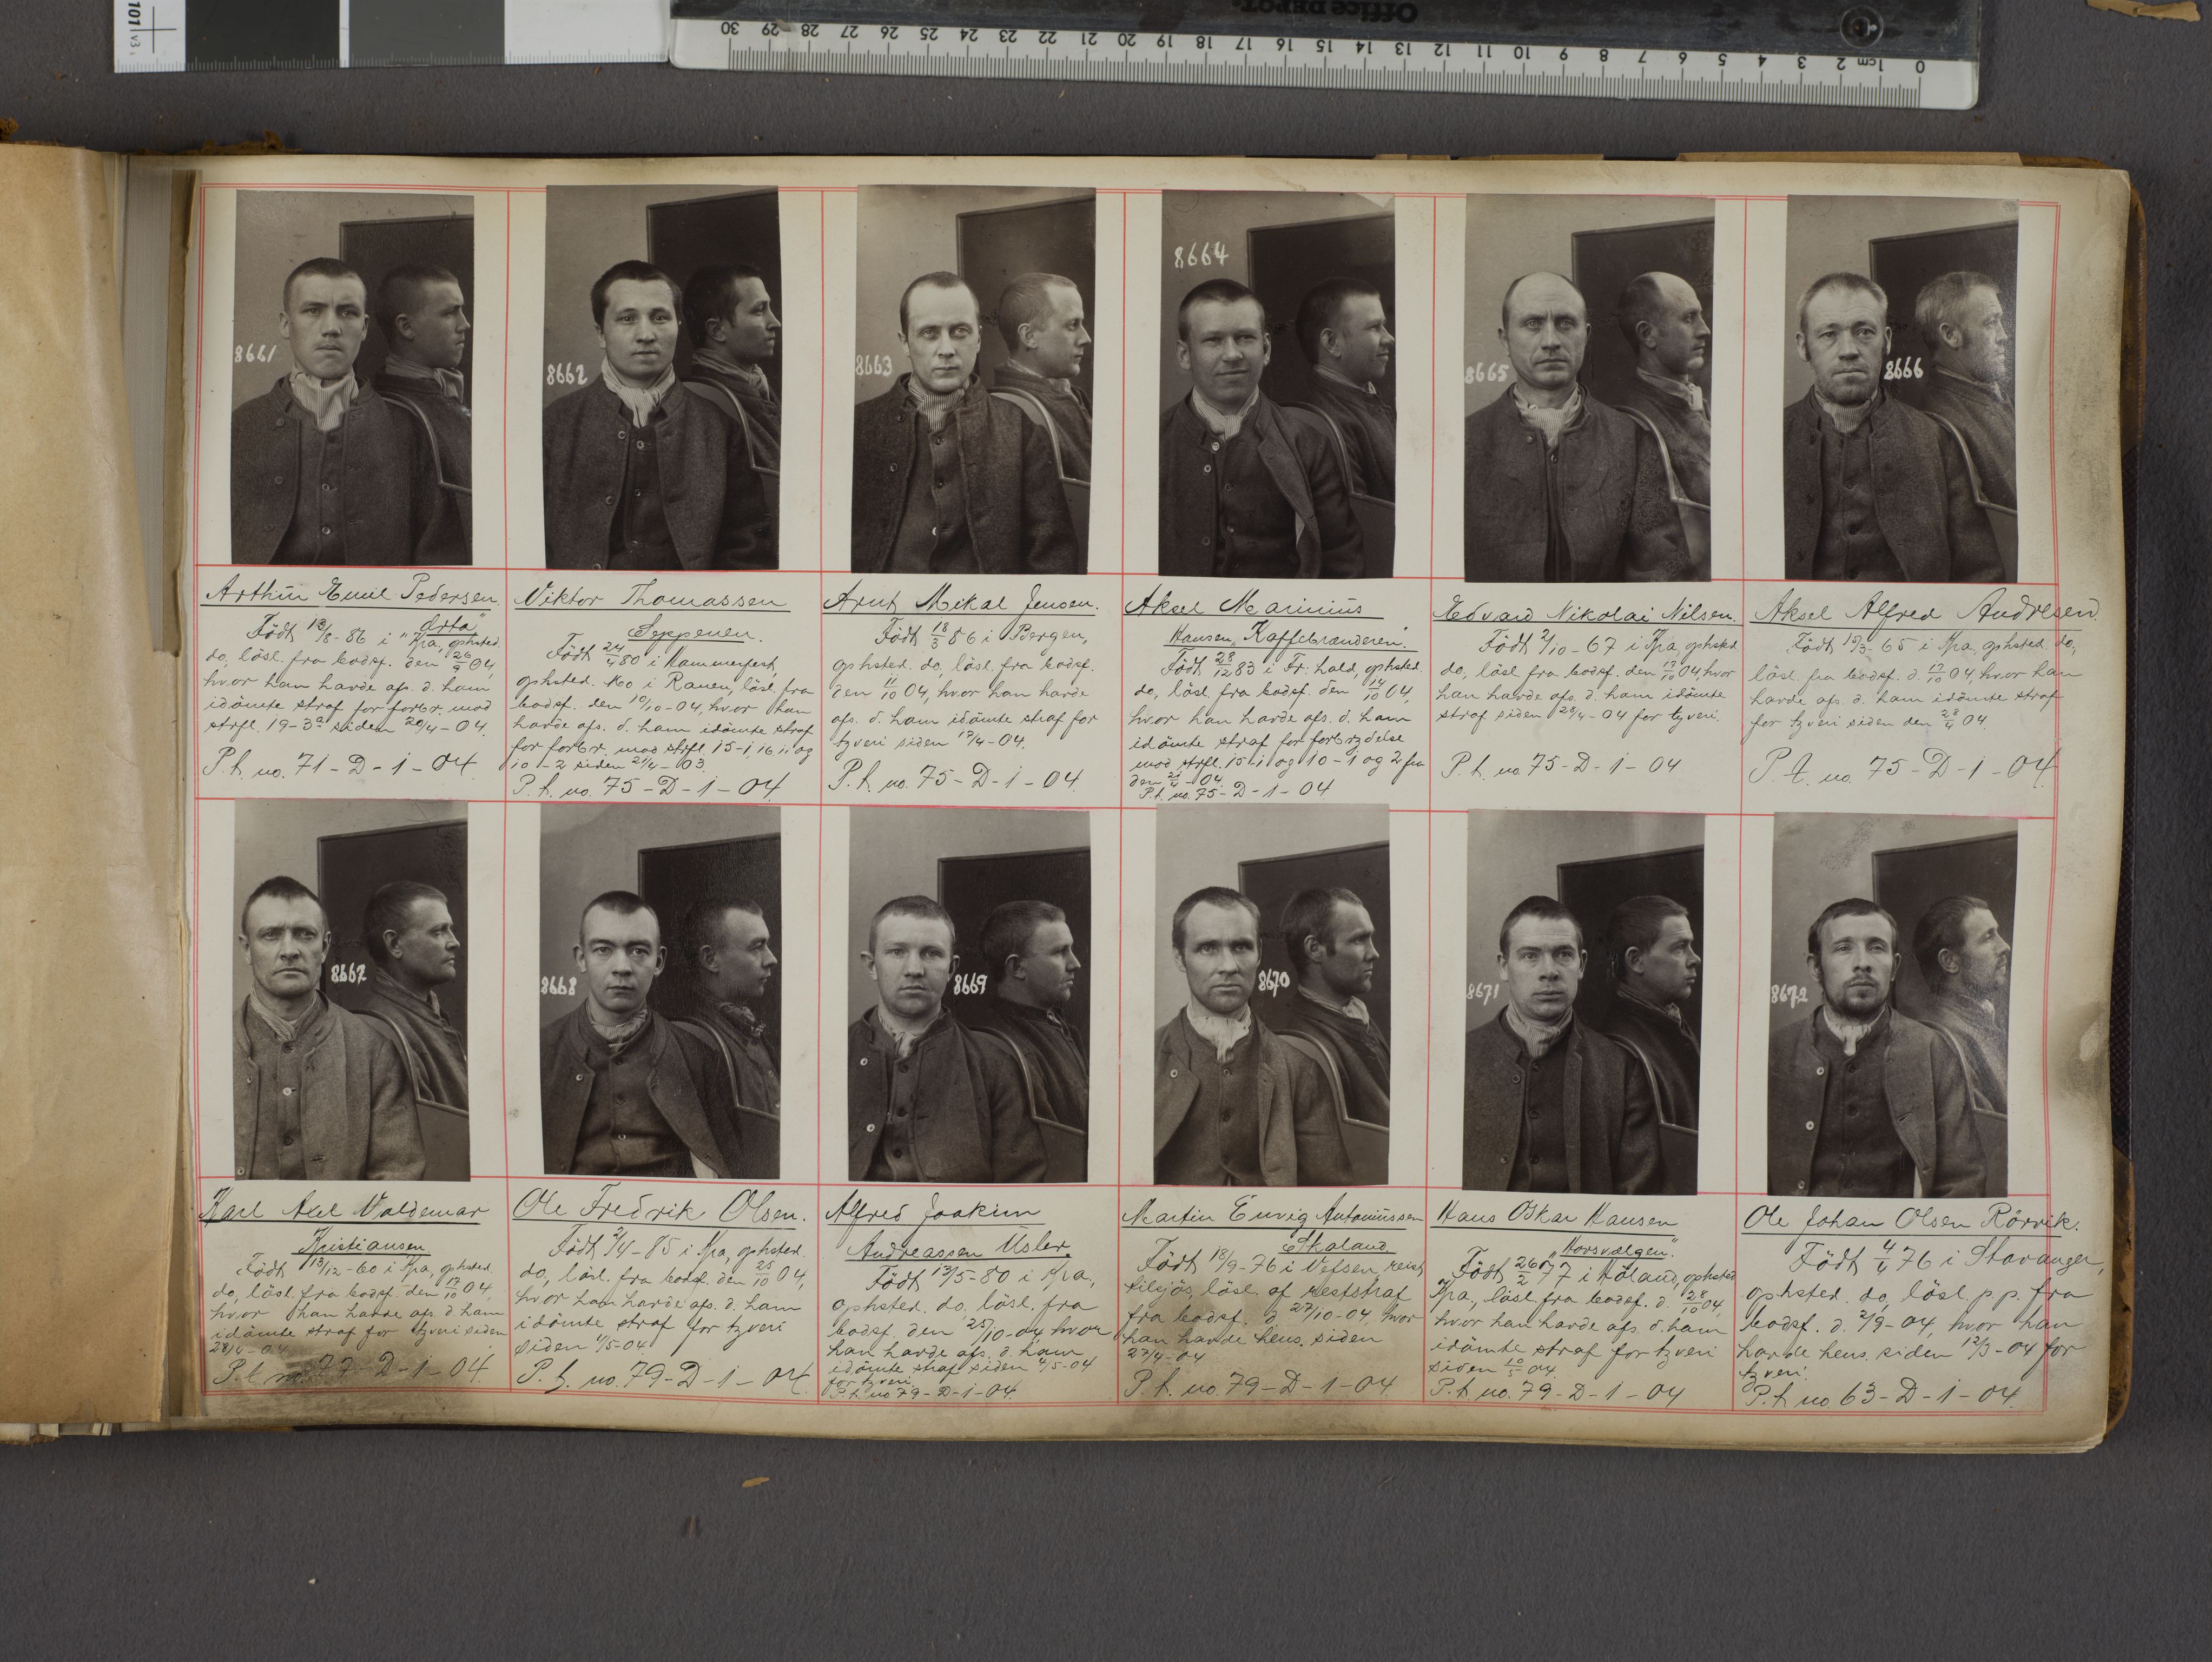 101 v3
Office DEPOT.
30 29 28 27 26 25 24 23 22 21 20 19 18 17 16 15 14 13 12 11 10 9 8 7 6 5 4 3 2 1cm 0
8661
8662
8663
8664
8665
8666
Arthur Emil Pedersen
"Örta"
Födt 12/8-86 i Kra, ophsted
do, lösl. fra bodsf. den 26/9 04,
hvor han havde afs. d. ham
idömte straf for forbr. mod
strfl. 19-3a siden 20/4-04.
P.t. no. 71-D-1-04
Viktor Thomassen
Seppenen.
Födt 24/4 80 i Hammerfest,
ophsted. Mo i Ranen, lösl. fra
bodsf. den 10/10-04, hvor han
havde afs. d. ham idömte straf
for forbr. mod strfl. 15-1, 16 1, og
10-2 siden 21/4-03.
P.t. no. 75-D-1-04
Arnt Mikal Jensen.
Födt 18/3 86 i Bergen,
ophsted. do. lösl. fra bodsf.
den 11/10 04, hvor han havde
afs. d. ham idömte straf for
tyveri siden 19/4-04.
P.t. no. 75-D-1-04
Aksel Marinius
Hansen, "Kaffebrænderen".
Födt 28/12 83 i Fr: hald, ophsted.
do, lösl. fra bodsf. den 14/10 04,
hvor han havde afs. d. ham
idömte straf for forbrydelse
mod strfl. 15-1 og 10-1 og 2 fra
den 21/4-04.
P.t. no. 75-D-1-04
Edvard Nikolai Nilsen.
Födt 2/10-67 i Kra, ophsted
do, lösl fra bodsf. den 17/10 04, hvor
han havde afs. d. ham idömte
straf siden 28/4-04 for tyveri.
P.t. no 75-D-1-04
Aksel Alfred Andresen
Födt 15/3-65 i Kra, ophsted. do,
lösl. fra bodsf. d. 17/10 04, hvor han
havde afs. d. ham idömte straf
for tyveri siden den 28/4 04.
P.t. no 75-D-1-04
8667
8668
8669
8670
8671
8672
Karl Axel Valdemar
Kristiansen
Födt 13/12-60 i Kra, ophsted.
do, lösl. fra bodsf. den 17/10 04,
hvor han havde afs. d ham
idömte straf for tyveri siden
28/4-04
P.t. no. 77-D-1-04.
Ole Fredrik Olsen.
Födt 2/4-85 i Kra, ophsted.
do, lösl. fra bodsf. den 25/10 04,
hvor han havde afs. d. ham
idömte straf for tyveri
siden 4/5-04.
P.t. no. 79-D-1-04
Alfred Joakim
Andreassen Usler.
Födt 13/5-80 i Kra,
ophsted. do. lösl. fra
bodsf. den 25/10-04, hvor
han havde afs. d. ham
idömte straf siden 4/5-04
for tyveri.
P.t. no 79-D-1-04.
Martin Envig Antoniussen
Skaland
Födt 18/9-76 i Vefsen, reist
tilsjös, lösl. af reststraf
fra bodsf. d. 27/10-04, hvor
han havde hens. siden
27/4-04
P.t. no. 79-D-1-04.
Hans Oskar Hansen
"Horsvælgen".
Födt 26/2 77 i Höland, ophsted
Kra., lösl. fra bodsf. d. 28/10 04,
hvor han havde afs. d. ham
idömte straf for tyveri
siden 10/5-04.
P.t. no. 79-D-1-04
Ole Johan Olsen Rörvik.
Födt 4/4 76 i Stavanger,
ophsted. do, lösl p.p. fra
bodsf. d. 2/9-04, hvor han
havde hens. siden 12/3-04 for
tyveri.
P.t. no 63-D-1-04.